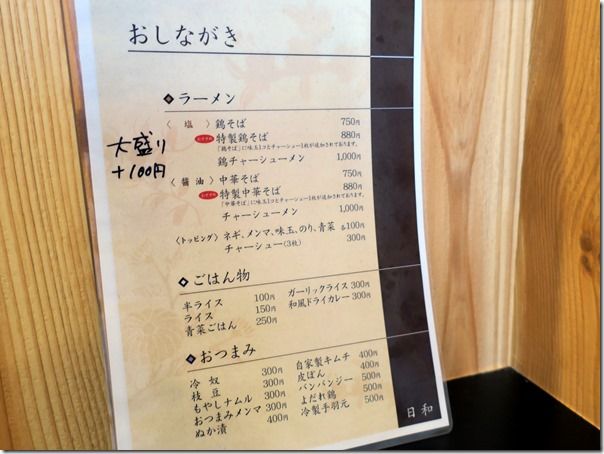 おしながき
ラーメン
〈 塩 〉鶏そば 750円
おすすめ 特製鶏そば 880円
「鶏そば」に味玉1コとチャーシュー1枚が追加されております。
鶏チャーシューメン 1,000円
〈 醤油 〉中華そば 750円
おすすめ 特製中華そば 880円
「中華そば」に味玉1コとチャーシュー1枚が追加されております。
チャーシューメン 1,000円
〈トッピング〉ネギ、メンマ、味玉、のり、青菜 各100円
チャーシュー(3枚) 300円
大盛り
+100円
ごはん物
半ライス 100円
ライス 150円
青菜ごはん 250円
ガーリックライス 300円
和風ドライカレー 300円
おつまみ
冷奴 300円
枝豆 300円
もやしナムル 300円
おつまみメンマ 300円
ぬか漬 400円
自家製キムチ 400円
皮ぽん 400円
バンバンジー 500円
よだれ鶏 500円
冷製手羽元 500円
日和